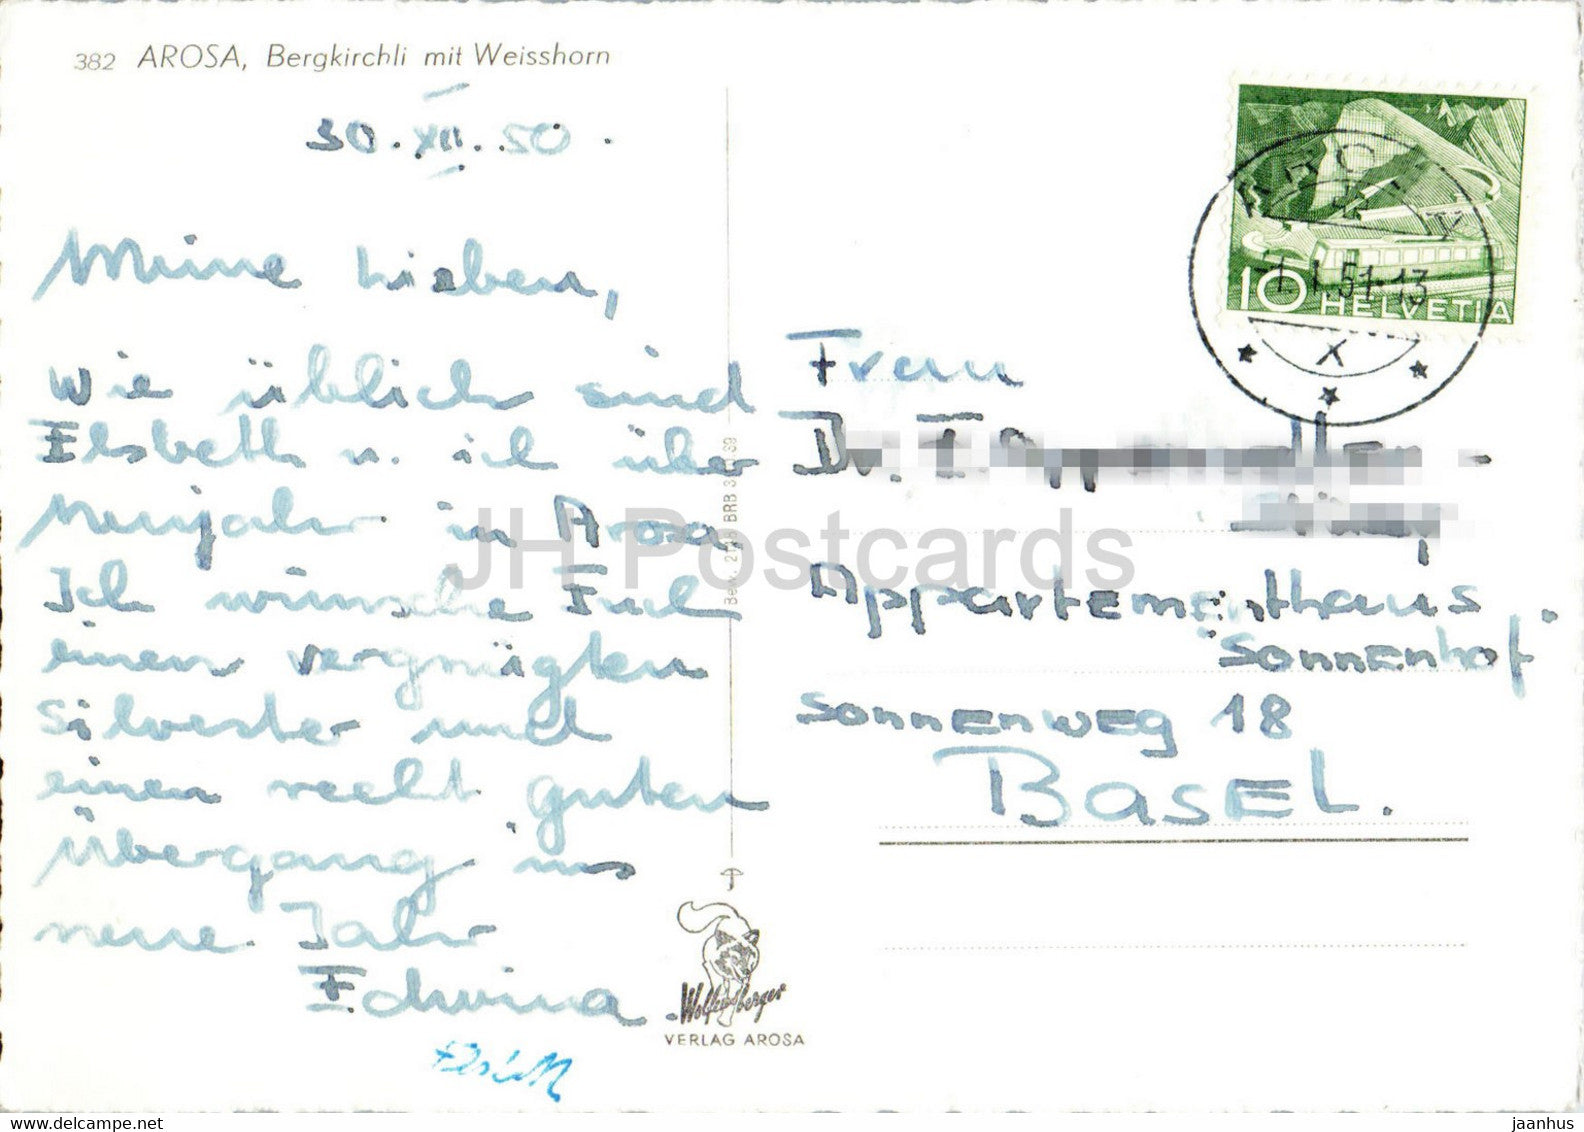 382 AROSA, Bergkirchli mit Weisshorn
30. XII. 50.
Meine Lieben,
Wie üblich sind
Elsbeth u. ich über
Neujahr in Arosa
Ich wünsche Euch
einen vergnügten
Silvester und
einen recht guten
Übergang ins
neue Jahr
Edwina.
Elsbeth
Bew. 21 8 BRB 3. 39
Wolfensberger
VERLAG AROSA
10 HELVETIA
AROSA
1. I. 51-13
X
Frau
Dr.
Appartementhaus
"Sonnenhof"
Sonnenweg 18
BASEL.
JH Postcards
www.delcampe.net
jaanhus